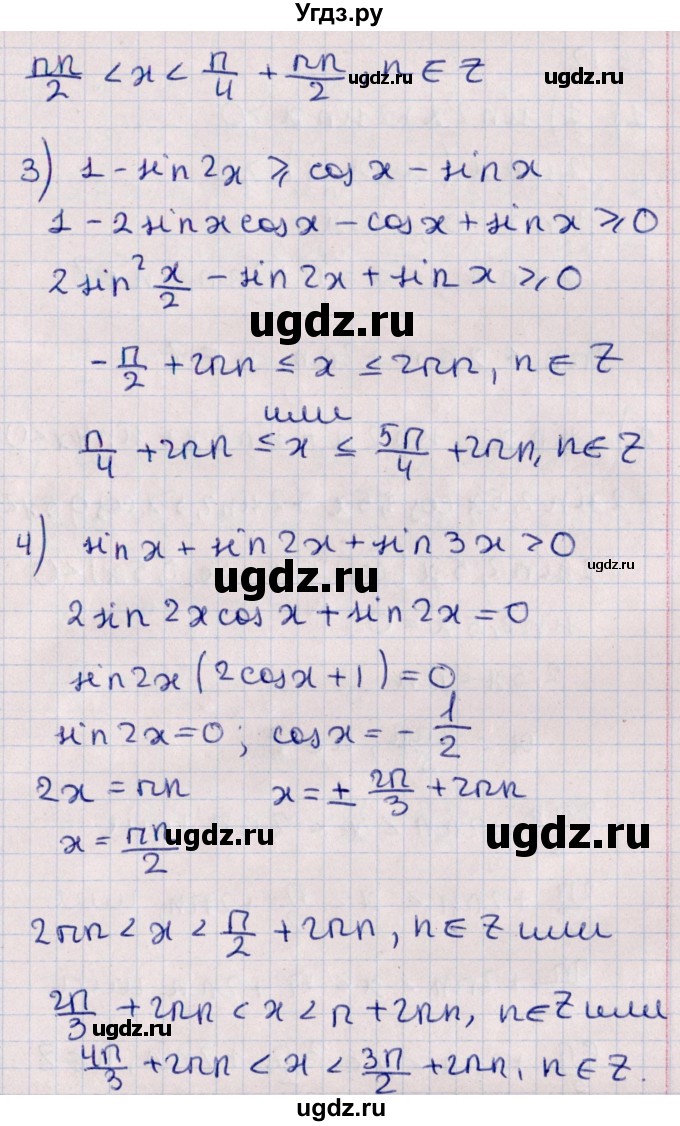 Угдз.ру
πn/2 < x < π/4 + πn/2, n ∈ Z
ugdz.ru ugdz.ru
3) 1 - sin 2x ⩾ cos x - sin x
1 - 2 sin x cos x - cos x + sin x ⩾ 0
2 sin² x/2 - sin 2x + sin x ⩾ 0
ugdz.ru
-π/2 + 2πn ≤ x ≤ 2πn, n ∈ Z
или
π/4 + 2πn ≤ x ≤ 5π/4 + 2πn, n ∈ Z
4) sin x + sin 2x + sin 3x > 0
ugdz.ru
ugdz.ru
2 sin 2x cos x + sin 2x = 0
sin 2x (2 cos x + 1) = 0
sin 2x = 0; cos x = - 1/2
2x = πn x = ± 2π/3 + 2πn
x = πn/2
ugdz.ru ugdz.ru
2πn < x < π/2 + 2πn, n ∈ Z или
2π/3 + 2πn < x < π + 2πn, n ∈ Z или
ugdz.ru
4π/3 + 2πn < x < 3π/2 + 2πn, n ∈ Z.
ugdz.ru